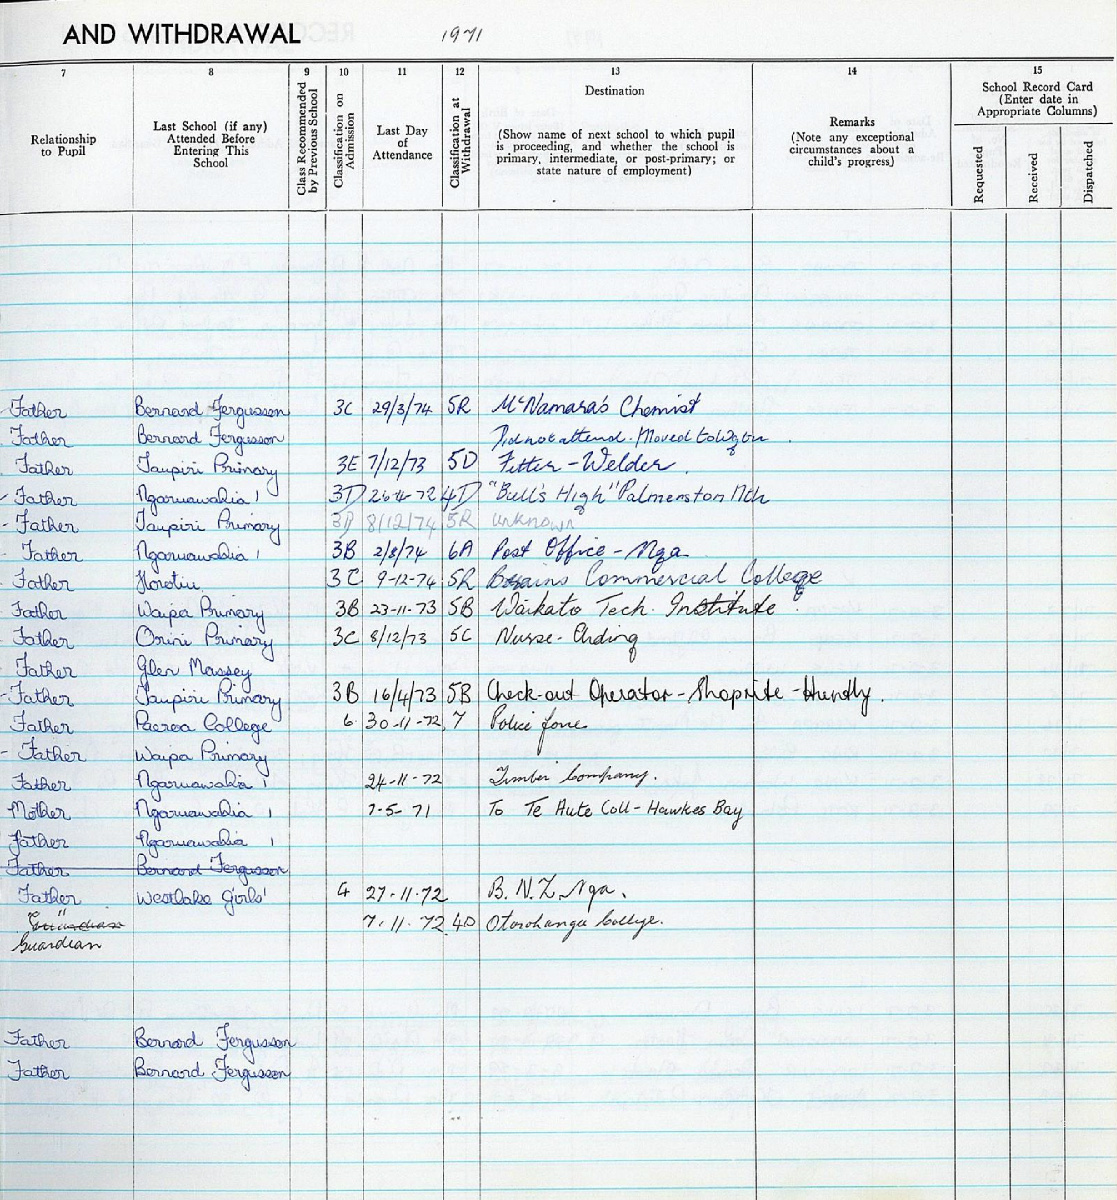 AND WITHDRAWAL 1971
7 8 9 10 11 12 13 14 15
Relationship to Pupil
Last School (if any) Attended Before Entering This School
Class Recommended by Previous School
Classification on Admission
Last Day of Attendance
Classification at Withdrawal
Destination
(Show name of next school to which pupil is proceeding, and whether the school is primary, intermediate, or post-primary; or state nature of employment)
Remarks
(Note any exceptional circumstances about a child's progress)
School Record Card
(Enter date in Appropriate Columns)
Requested
Received
Dispatched
Father Bernard Fergusson 3C 29/3/74 5R McNamara's Chemist
Father Bernard Fergusson Did not attend. Moved to Wgtn
Father Taupiri Primary 3E 7/12/73 5D Fitter - Welder.
Father Ngaruawahia 1 3D 26-4-72 4D "Bull's High" Palmerston Nth
Father Taupiri Primary 3D 8/12/74 5R unknown
Father Ngaruawahia 1 3B 2/8/74 6A Post Office - Nga
Father Horotiu 3C 9-12-74 5R Commercial College
Father Waipa Primary 3B 23-11-73 5B Waikato Tech. Institute
Father Orini Primary 3C 8/12/73 5C Nurse-Aiding
Father Glen Massey
Father Taupiri Primary 3B 16/4/73 5B Check-out Operator - Shoprite - Huntly.
Father Paeroa College 6 30-11-72 7 Police force
Father Waipa Primary
Father Ngaruawahia 1 24-11-72 Timber Company.
Mother Ngaruawahia 1 7-5-71 To Te Aute Coll - Hawkes Bay
Father Ngaruawahia 1
Father Bernard Fergusson
Father Westlake Girls' 4 27-11-72 B.N.Z. Nga.
" 7-11-72 4D Otorohanga College.
Guardian
Father Bernard Fergusson
Father Bernard Fergusson